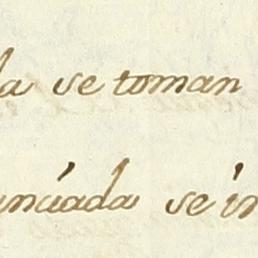 la se toman
unciada se in